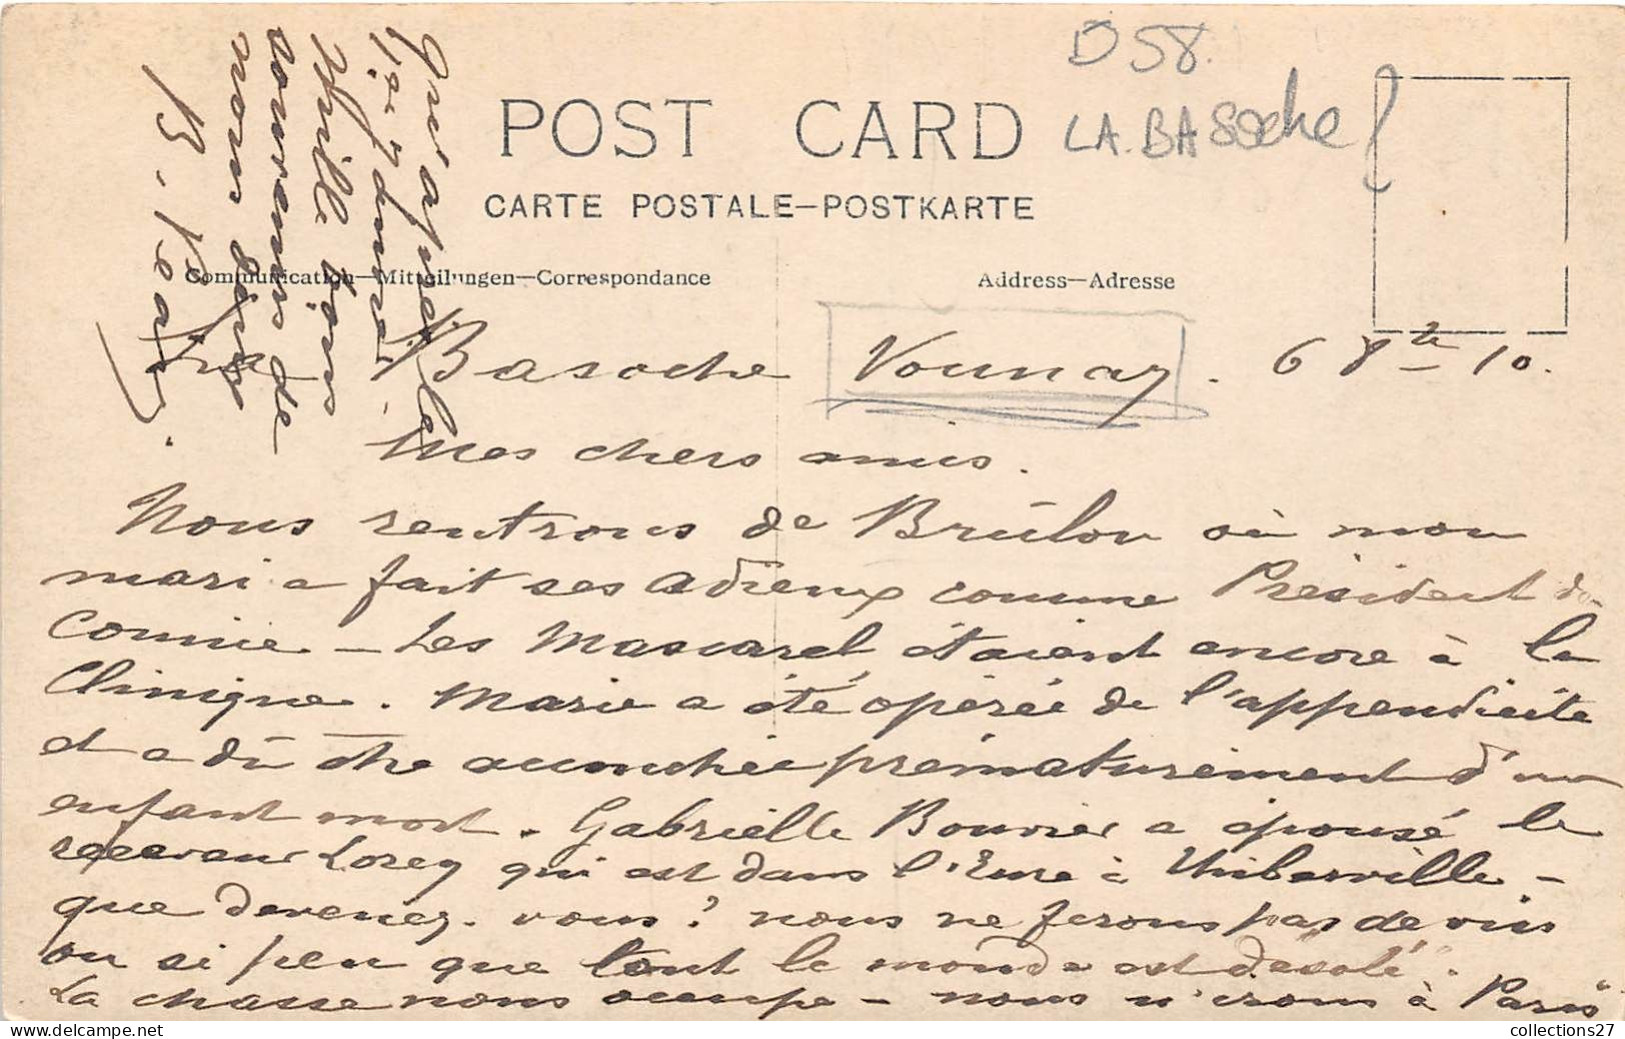 D 58.
LA BASoche
POST CARD
CARTE POSTALE—POSTKARTE
Communication—Mitteilungen—Correspondance
Address—Adresse
La Basoche Vounay. 6 8bre 10.
Mes chers amis.
Nous rentrons de Brûlon où mon
mari a fait ses adieux comme Président du
Comice — Les Mascarel étaient encore à la
Clinique. Marie a été opérée de l'appendicite
et a dû être accouchée prématurément d'un
enfant mort. Gabrielle Bouvier a épousé le
receveur Lorey qui est dans l'Eure à Thiberville —
que devenez-vous? nous ne ferons pas de vin
ou si peu que tout le monde est désolé.
La chasse nous occupe — nous n'irons à Paris
qu'après le
1er Janvier.
Mille bons
souvenirs de
nous deux
B.
collections27